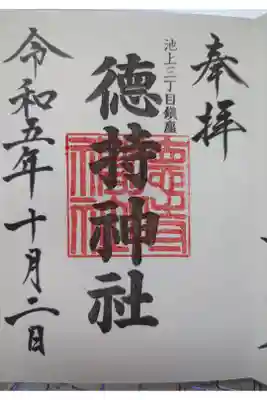 奉拝
池上三丁目鎮座
徳持神社
令和五年十月二日